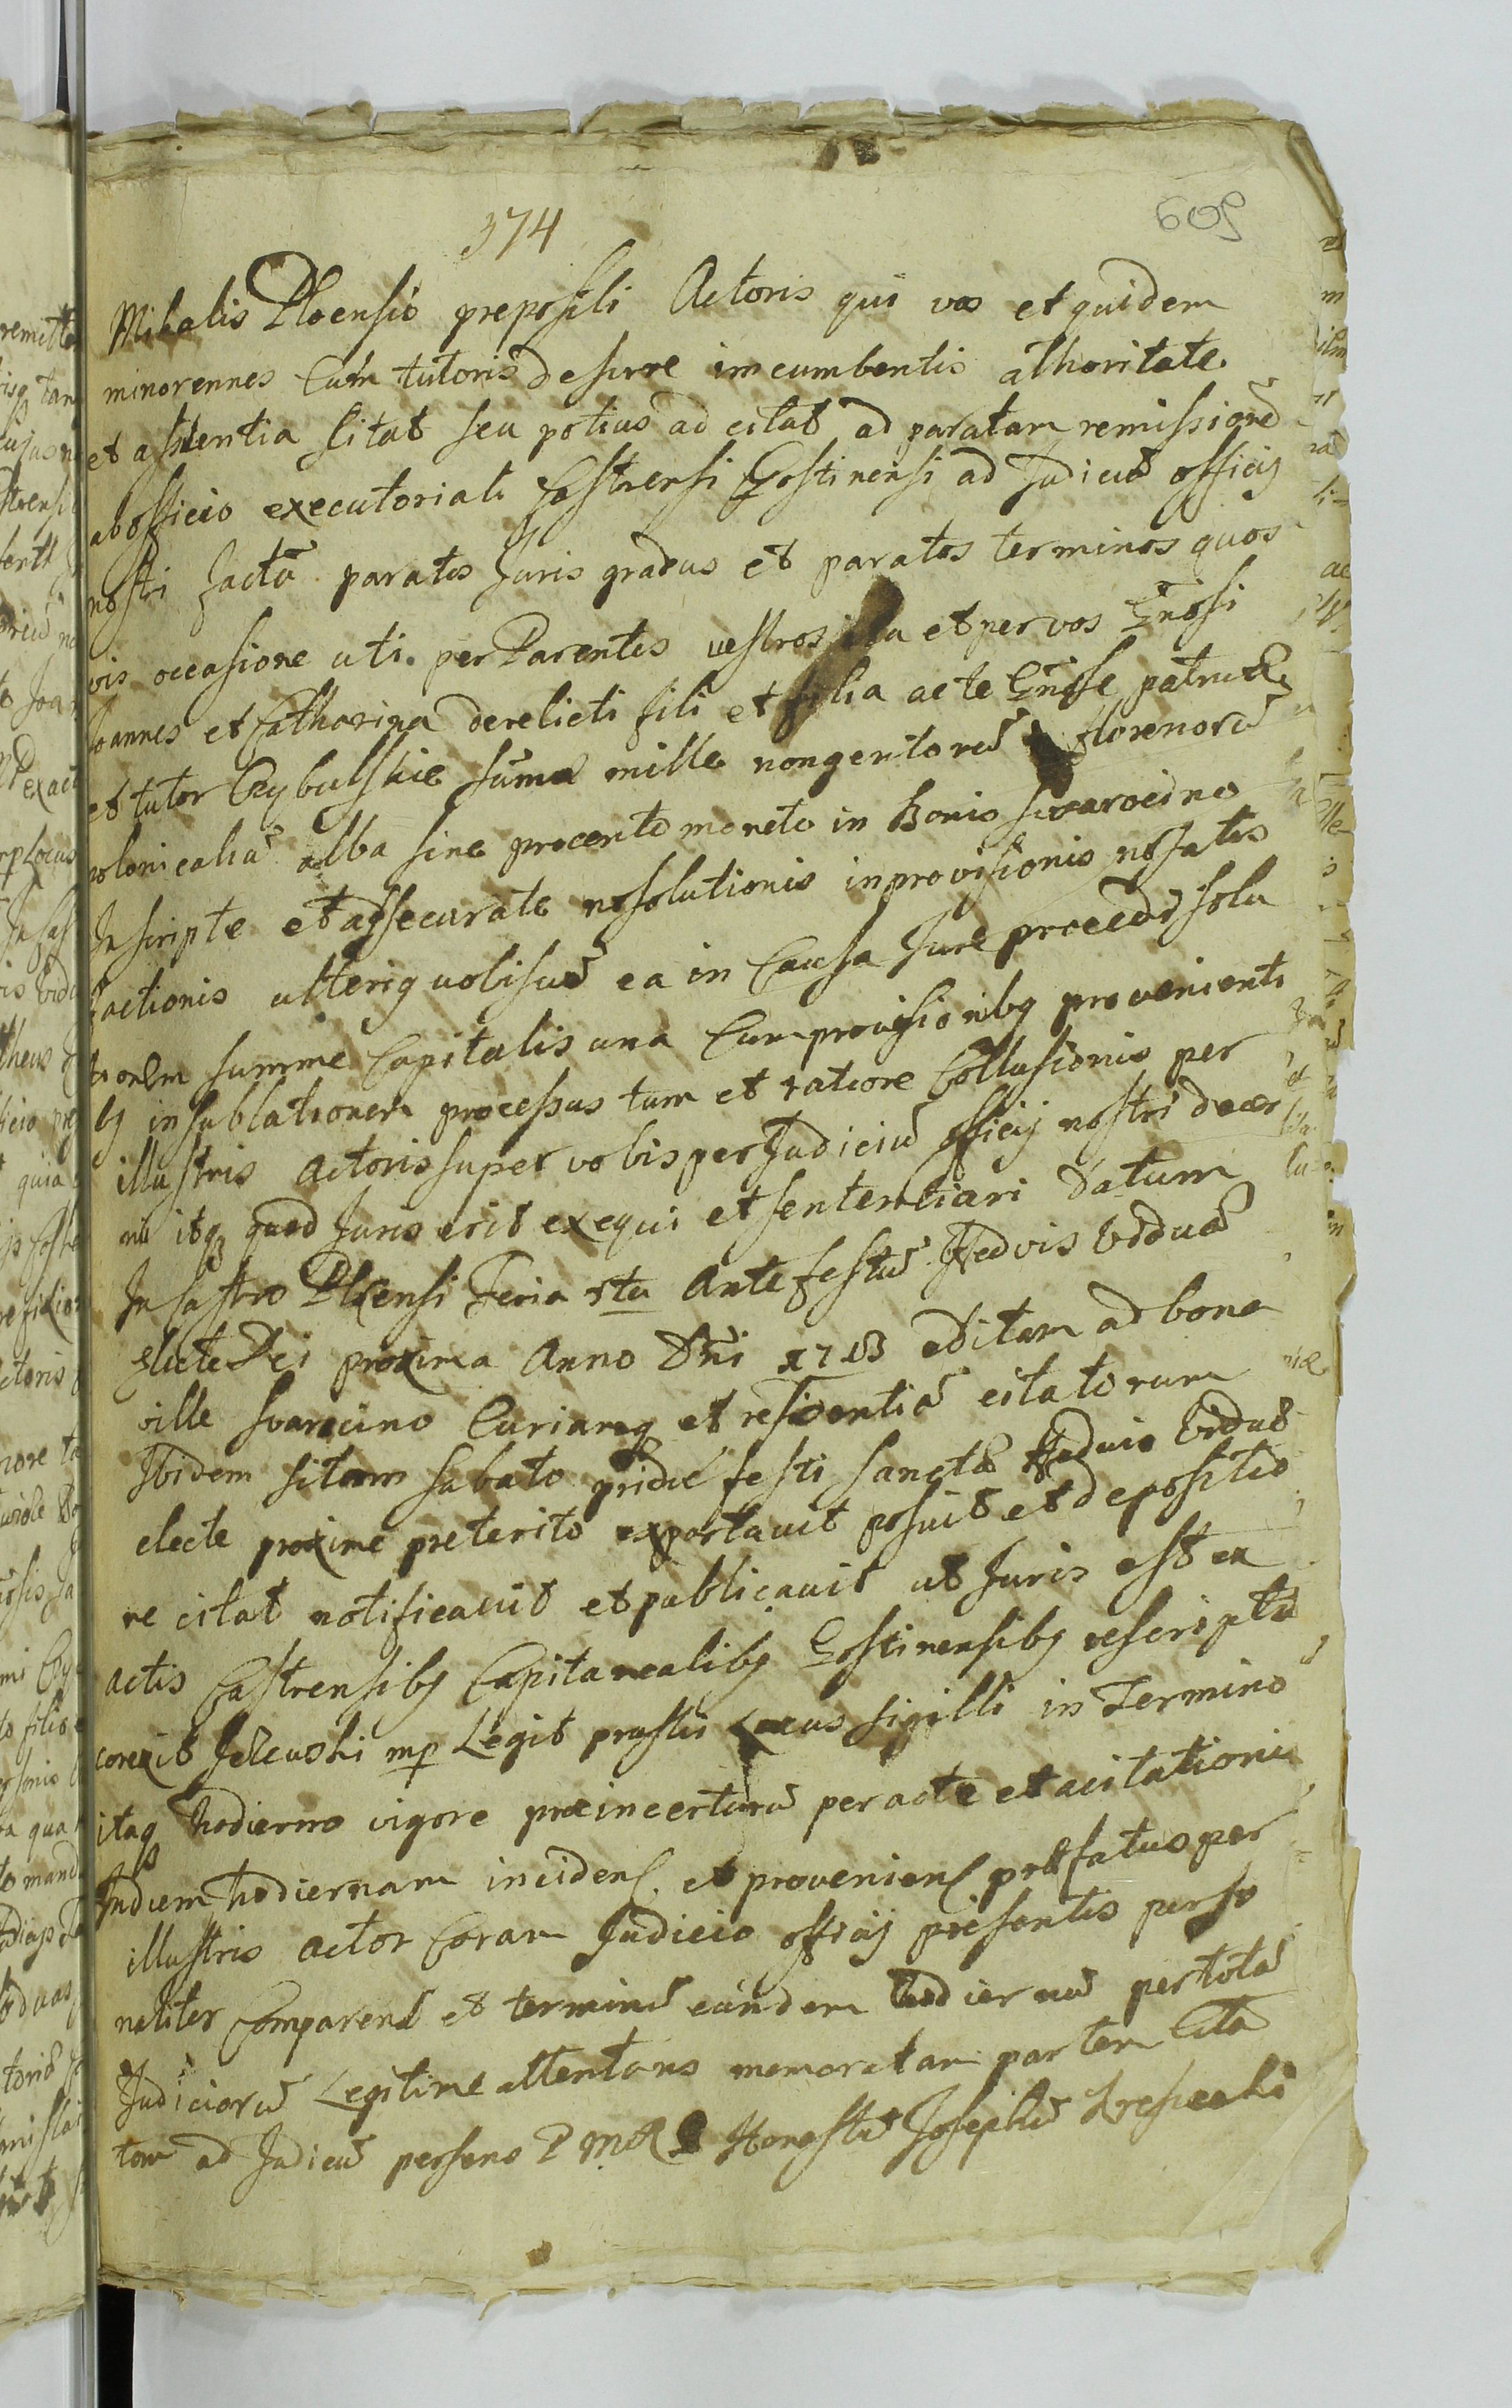 374
609
Mihalis Plocensis prepositi Actoris qui vos et quidem
minorennes Cum tutoris de jure imcumbentis athoritate
et asistentia Citat seu potius ad citat ad paratam remissionē
ab officio executoriali Castrensi Gostinensi ad Judiciū officij
nostri factā paratos Juris gradus et paratos terminos quos
vis occasione uti per Parentes vestros et per vos Gnosi
Joannes et Catharina derelicti fili et filia ac te Gnose patrue
et tutor Cybulskie sum̄a mille nongentorū florenorū
polonicaliū alba sine procento moneto in Bonis swarocino
Inscripte et assecurate nosolutionis inprovisionis nosatis
factionis ulterig ea in Causa Jure procedi solu
tionem summe Capitalis una Cum provisionibg provenienti
bg in sublationem processus tum et ratione Collusionis per
illustris Actoris super vobis per Judiciū officij nostri decer
ni itq quod Juris erit exequi et sententiari Datum
In Castro Plocensi Feria 5ta Ante festū Hedvis Viduæ
Electe Dei proxima Anno Dn̄i editam ad bona
ville Swarocino Curiamq et residentiā citatorum
Ibidem sitam sabato pridie festi Sanctæ Heduis Viduæ
electe proxime preterito exportavit posuit et de positio
ne citat notificavit et publicavit ut Juris est ex
actis Castrensibg Capitanealibg Gostinensibg rescriptū
corexit mp Legit Locus sigilli in Termino
itaq hodierno vigore præincertarū peracte et acitationis
In diem hodiernam incidens et proveniens præfatus per
illustris actor Coram Judicio officij presentis perso
naliter Comparens et terminū eundem hodiernū per totā
Judiciorū Legitime attentans memoratam partem Cita
tam ad Judiciū Honestū Josephū